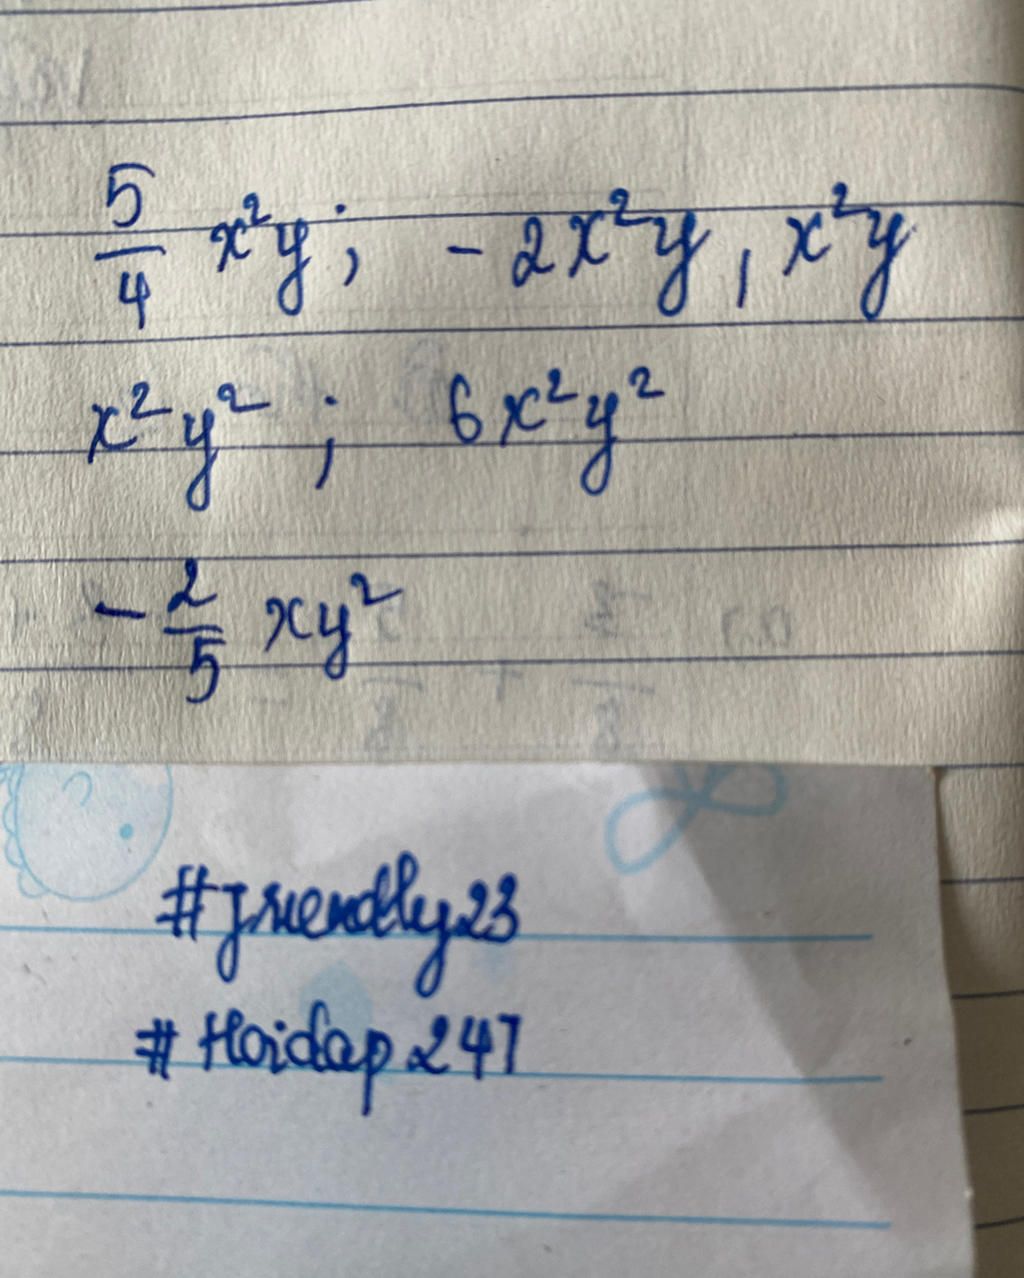 5/4 x²y; -2x²y, x²y
x²y²; 6x²y²
-2/5 xy²
#friendly23
#Hoidap247